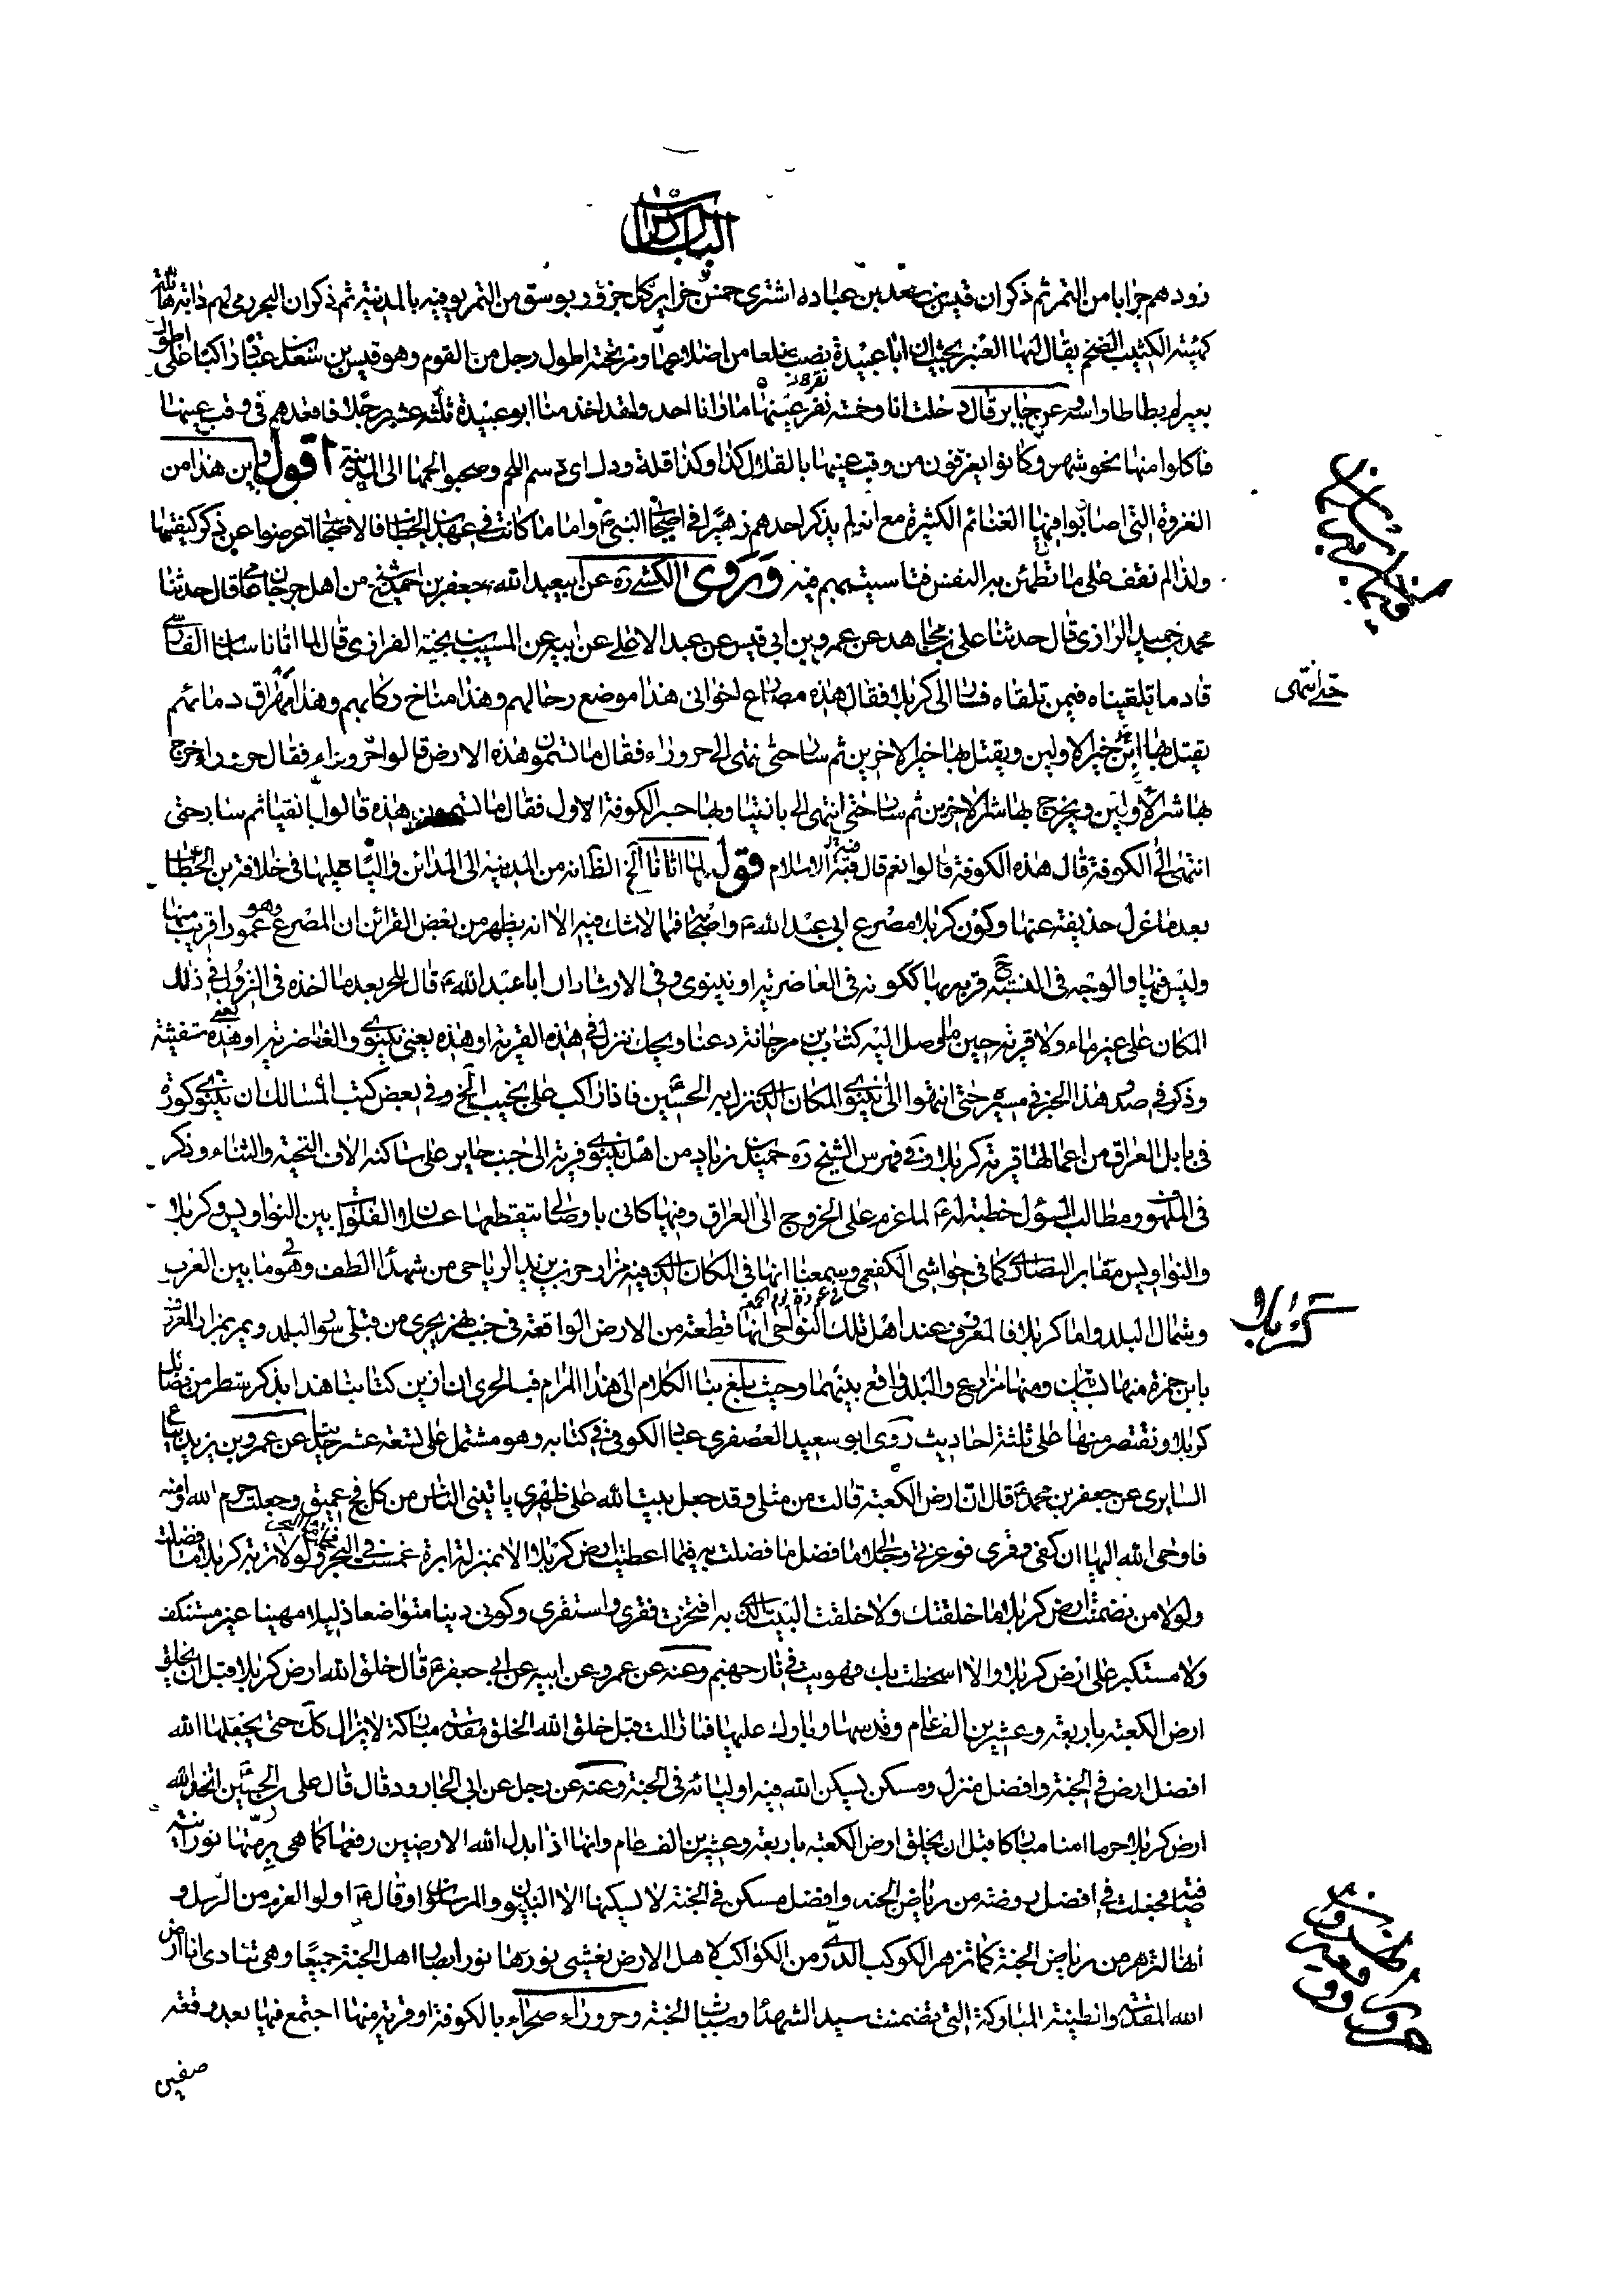 الباب السادس
زودهم جرابا من التمر ثم ذكر ان قيس بن سعد بن عباده اشترى خمس جزاير كل جزور بوسق من التمر يوفيه بالمدينة ثم ذكر ان البحر رمى لهم دابة هائلة
كهيئة الكثيب الضخم يقال لها العنبر بحيث ان ابا عبيدة نصب ضلعا من اضلاعها ومر تحته اطول رجل من القوم وهو قيس بن سعد بن عبادة راكبا على اطول
بعير لم يطاطا راسه عن جابر قال دخلت انا وخمسة نفر عينها ما رانا احد ولقد اخذ منا ابو عبيدة ثلثة عشر رجلا فاقعدهم في وقب عينها
فاكلوا منها نحو شهر وكانوا يغترفون من وقب عينها بالقلال كذا وكذا قلة ودك اي دسم اللحم وصحبوا لحمها الى المدينة اقول واين هذا من
الغزوة التي اصابوا فيها الغنائم الكثيرة مع انه لم يذكر احدهم زهيرا في اصحاب النبي ص واما ما كانت في عهد بن الخطاب فالاصحاب اعرضوا عن ذكر كيفيتها
ولذا لم نقف على ما تطمئن به النفس فتاسيت بهم فيه وروى الكشي ره عن ابي عبد الله جعفر بن احمد شيخ من اهل جرجان عامي قال حدثنا
محمد بن حميد الرازي قال حدثنا علي بن مجاهد عن عمرو بن ابي قيس عن عبد الاعلى عن ابيه عن المسيب بن نجبة الفزاري قال لما اتانا سلمان الفارسي
قادما تلقيناه فيمن تلقاه فسار الى كربلا فقال هذه مصارع اخواني هذا موضع رحالهم وهذا مناخ ركابهم وهذا مهراق دمائهم
يقتل بها ابن خير الاولين ويقتل بها خير الاخرين ثم سار حتى انتهى الى حروراء فقال ما تسمون هذه الارض قالوا حروراء فقال حروراء خرج
بها شر الاولين ويخرج بها شر الاخرين ثم سار حتى انتهى الى بانقيا وبها جسر الكوفة الاول فقال ما تسمون هذه قالوا بانقيا ثم سار حتى
انتهى الى الكوفة قال هذه الكوفة قالوا نعم قال قبة الاسلام قوله لما اتانا الخ الظ انه من المدينة الى المدائن واليا عليها في خلافة بن الخطاب
بعد ما عزل حذيفة عنها وكون كربلا مصرع ابي عبد الله ع واصحابه فما لا شك فيه الا انه يظهر من بعض القرائن ان المصرع وهو عمورا قريب منها
وليس فيها والوجه في النسبة قربه بها ككونه في الغاضرية او نينوى وفي الارشاد ان ابا عبد الله ع قال للحر بعد ما اخذه في النزول في ذلك
المكان على غير ماء ولا قرية حين ما وصل اليه كتاب بن مرجانة دعنا ويحك ننزل في هذه القرية او هذه يعني نينوى والغاضرية او هذه يعني شفيثة
وذكر في صدر هذا الخبر في مسيره حتى انتهوا الى نينوى المكان الذي نزل به الحسين فاذا راكب على نجيب الخ وفي بعض كتب المسالك ان نينوى كورة
في بابل العراق من اعمالها قرية كربلا وفي فهرس الشيخ ره حميد بن زياد من اهل نينوى قرية الى جنب حاير على ساكنه الاف التحية والثناء وذكر
في الملهوف ومطالب السؤل خطبة له ع لما عزم على الخروج الى العراق وفيها كاني باوصالي تتقطعها عسلان الفلوات بين النواويس وكربلا
والنواويس مقابر النصارى كما في حواشي الكفعمي وسمعنا انها في المكان الذي فيه مزار حر بن يزيد الرياحي من شهداء الطف وهو ما بين الغرب
وشمال البلد واما كربلا فالمعروف عند اهل تلك النواحي انها قطعة من الارض الواقعة في جنب نهر يجري من قبلي سور البلد ويمر بمزار المعروف
بابن حمزة منها بساتين ومنها مزارع والبلد واقع بينهما وحيث بلغ بنا الكلام الى هذا المرام فبالحري ان نزين كتابنا هذا بذكر سطر من فضائل
كربلا ونقتصر منها على ثلثة احاديث روى ابو سعيد العصفري عباد الكوفي في كتابه وهو مشتمل على تسعة عشر حديثا عن عمرو بن يزيد بياع
السابري عن جعفر بن محمد ع قال ان ارض الكعبة قالت من مثلي وقد جعل بيت الله على ظهري ياتيني الناس من كل فج عميق وجعلت حرم الله وامنه
فاوحى الله اليها ان كفي وقري فوعزتي وجلالي ما فضل ما فضلت به فيما اعطيت ارض كربلا الا بمنزلة ابرة غمست في البحر ولولا تربة كربلا ما فضلت
ولولا من تضمنت ارض كربلا ما خلقتك ولا خلقت البيت الذي به افتخرت فقري واستقري وكوني دنيا متواضعا ذليلا مهينا غير مستنكف
ولا مستكبر على ارض كربلا والا اسخطت بك فهويت في نار جهنم وعنه عن عمرو عن ابيه عن ابي جعفر ع قال خلق الله ارض كربلا قبل ان يخلق
ارض الكعبة باربعة وعشرين الف عام وقدسها وبارك عليها فما زالت قبل خلق الله الخلق مقدسة مباركة لا تزال كك حتى يجعلها الله
افضل ارض في الجنة وافضل منزل ومسكن يسكن الله فيه اوليائه في الجنة وعنه عن رجل عن ابي الجارود قال قال علي بن الحسين اتخذ الله
ارض كربلا حرما امنا مباركا قبل ان يخلق ارض الكعبة باربعة وعشرين الف عام وانها اذا بدل الله الارضين رفعها كما هي برمتها نورانية
صافية فجعلت في افضل روضة من رياض الجنة وافضل مسكن في الجنة لا يسكنها الا النبيون والمرسلون او قال ع اولو العزم من الرسل و
انها لتزهر من رياض الجنة كما تزهر الكوكب الدري من الكواكب لاهل الارض يغشي نورها نور ابصار اهل الجنة جميعا وهي تنادي انا ارض
الله المقدسة والطينة المباركة التي تضمنت سيد الشهداء وشباب الجنة وحروراء صحراء بالكوفة او قرية منها اجتمع فيها بعد وقعة
صفين
حتى انتهى
كربلا